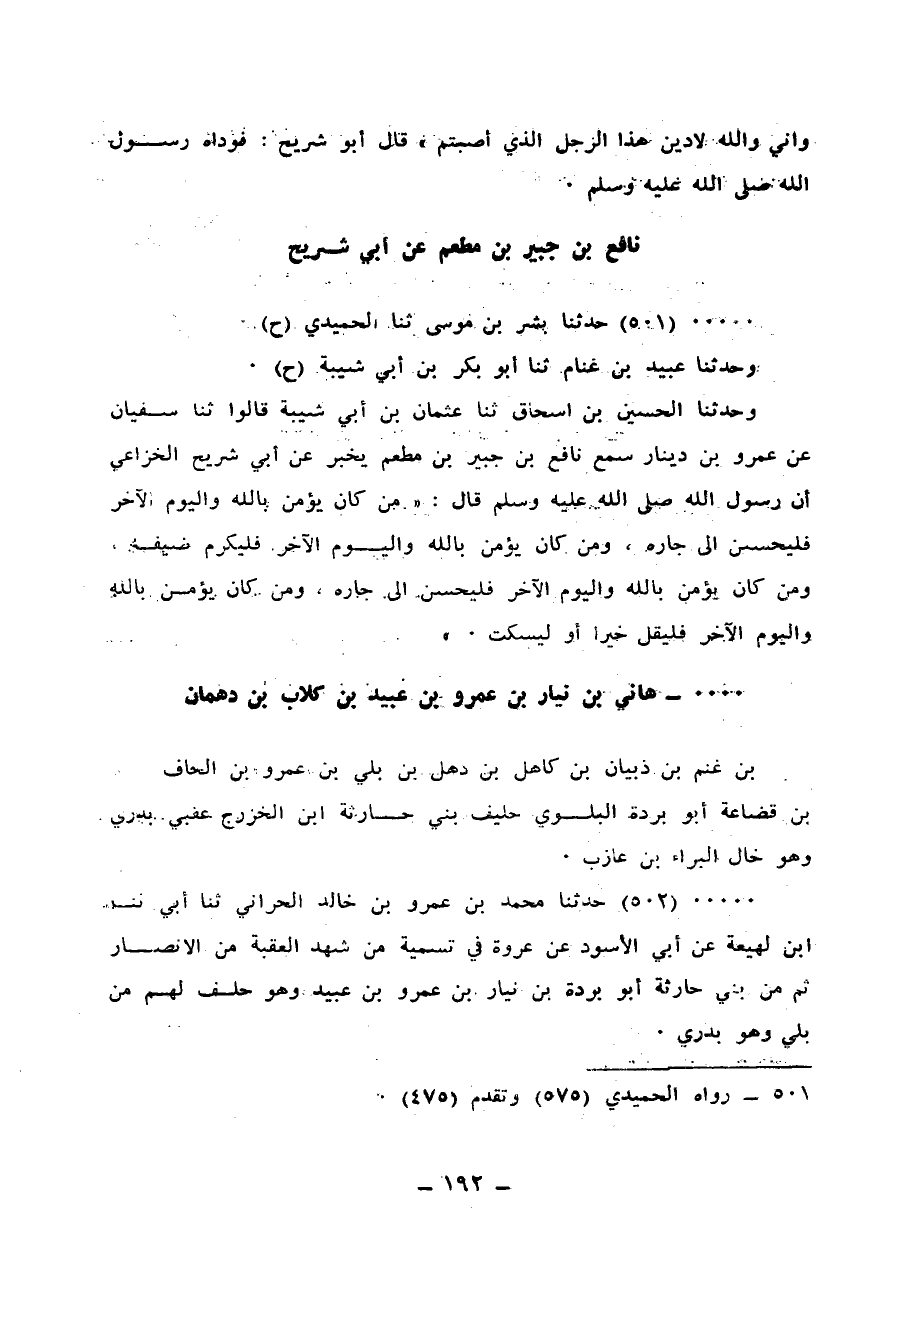 واني والله لادين هذا الرجل الذي أصبتم » قال أبو شريح : فوداه رســـول
الله صلى الله عليه وسلم ٠
نافع بن جبير بن مطعم عن أبي شــريح
٠٠٠٠٠ (٥٠١) حدثنا بشر بن موسى ثنا الحميدي (ح) ٠
وحدثنا عبيد بن غنام ثنا أبو بكر بن أبي شيبة (ح) ٠
وحدثنا الحسين بن اسحاق ثنا عثمان بن أبي شيبة قالوا ثنا ســفيان
عن عمرو بن دينار سمع نافع بن جبير بن مطعم يخبر عن أبي شريح الخزاعي
أن رسول الله صلى الله عليه وسلم قال : « من كان يؤمن بالله واليوم الآخر
فليحســن الى جاره ، ومن كان يؤمن بالله واليـــوم الآخر فليكرم ضيفــه ،
ومن كان يؤمن بالله واليوم الآخر فليحسن الى جاره ، ومن كان يؤمــن بالله
واليوم الآخر فليقل خيرا أو ليسكت ٠ »
٠٠٠٠ ــ هاني بن نيار بن عمرو بن عبيد بن كلاب بن دهمان
بن غنم بن ذبيان بن كاهل بن دهل بن بلي بن عمرو بن الحاف
بن قضاعة أبو بردة البلـــوي حليف بني حـــارثة ابن الخزرج عقبي بدري
وهو خال البراء بن عازب ٠
٠٠٠٠٠ (٥٠٢) حدثنا محمد بن عمرو بن خالد الحراني ثنا أبي ثنــا
ابن لهيعة عن أبي الأسود عن عروة في تسمية من شهد العقبة من الانصـــار
ثم من بني حارثة أبو بردة بن نيار بن عمرو بن عبيد وهو حلــف لهــم من
بلي وهو بدري ٠
٥٠١ ــ رواه الحميدي (٥٧٥) وتقدم (٤٧٥) ٠
ــ ١٩٢ ــ